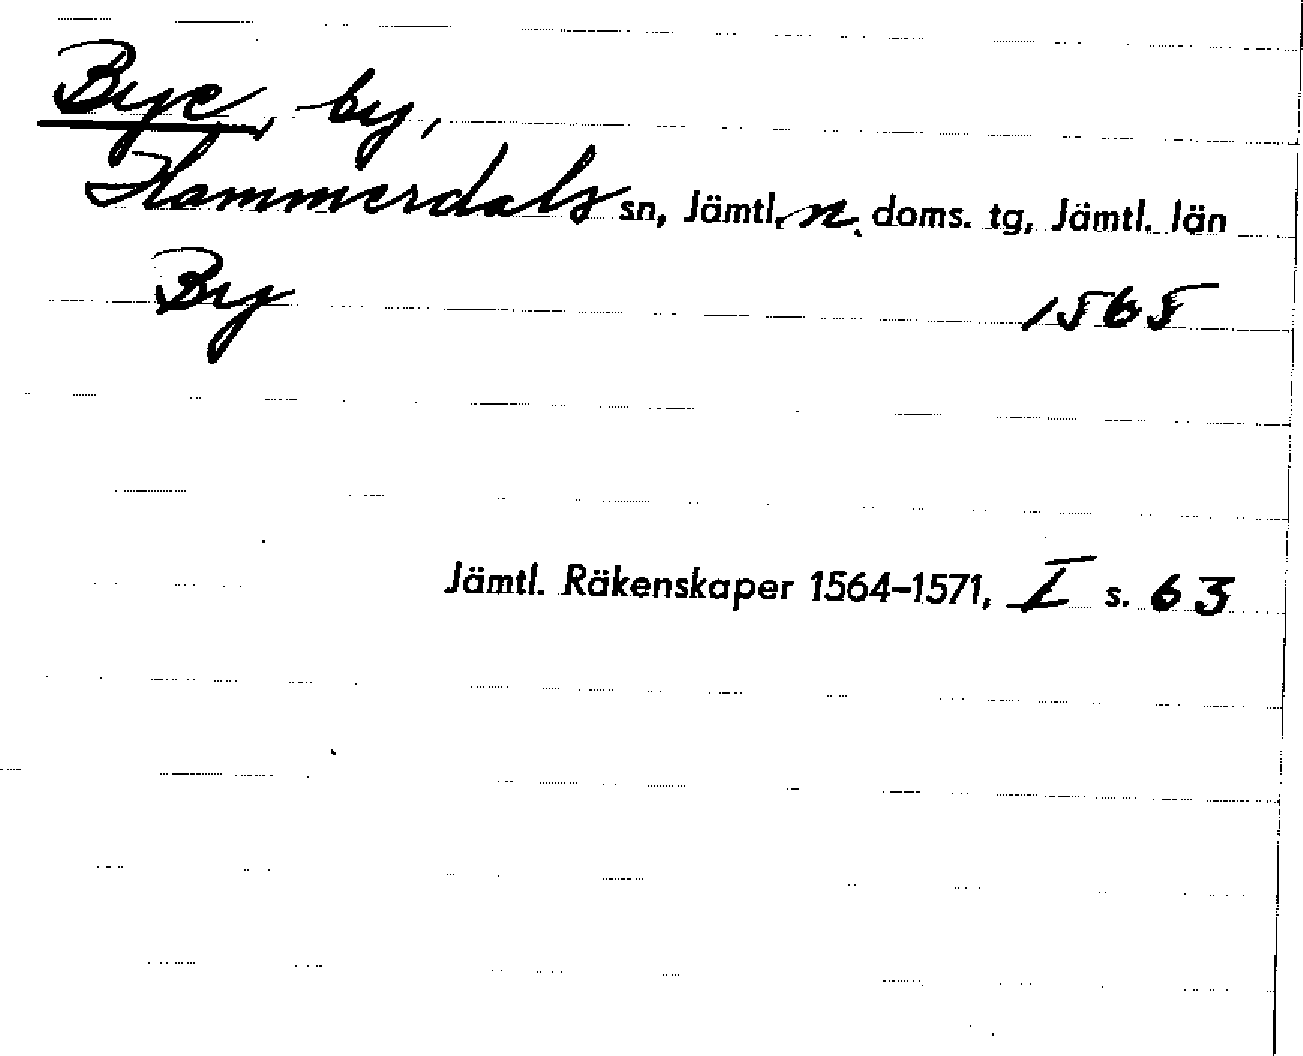 Bye, by,
Hammerdals sn, Jämtl. n. doms. tg, Jämtl. län
By 1565
Jämtl. Räkenskaper 1564-1571, I s. 63